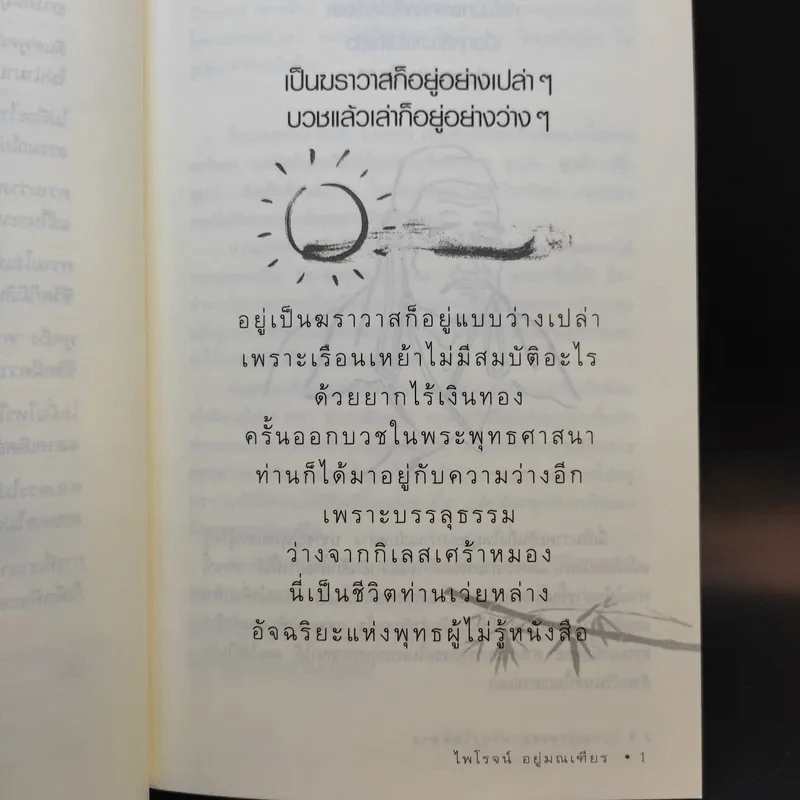 เป็นฆราวาสก็อยู่อย่างเปล่า ๆ
บวชแล้วเล่าก็อยู่อย่างว่าง ๆ
อยู่เป็นฆราวาสก็อยู่แบบว่างเปล่า
เพราะเรือนเหย้าไม่มีสมบัติอะไร
ด้วยยากไร้เงินทอง
ครั้นออกบวชในพระพุทธศาสนา
ท่านก็ได้มาอยู่กับความว่างอีก
เพราะบรรลุธรรม
ว่างจากกิเลสเศร้าหมอง
นี่เป็นชีวิตท่านเว่ยหล่าง
อัจฉริยะแห่งพุทธผู้ไม่รู้หนังสือ
ไพโรจน์ อยู่มณเฑียร • 1